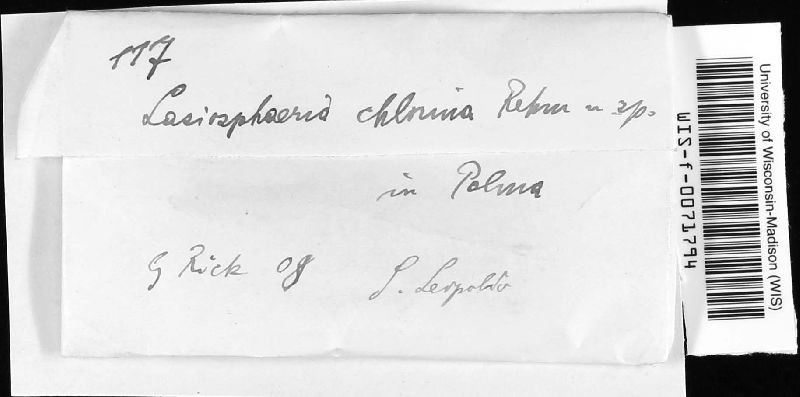 117
Lasiosphaeria chlorina Rehm n sp.
in Palma
G Rick 08 S. Leopoldo
University of Wisconsin-Madison (WIS)
WIS-f-0071794